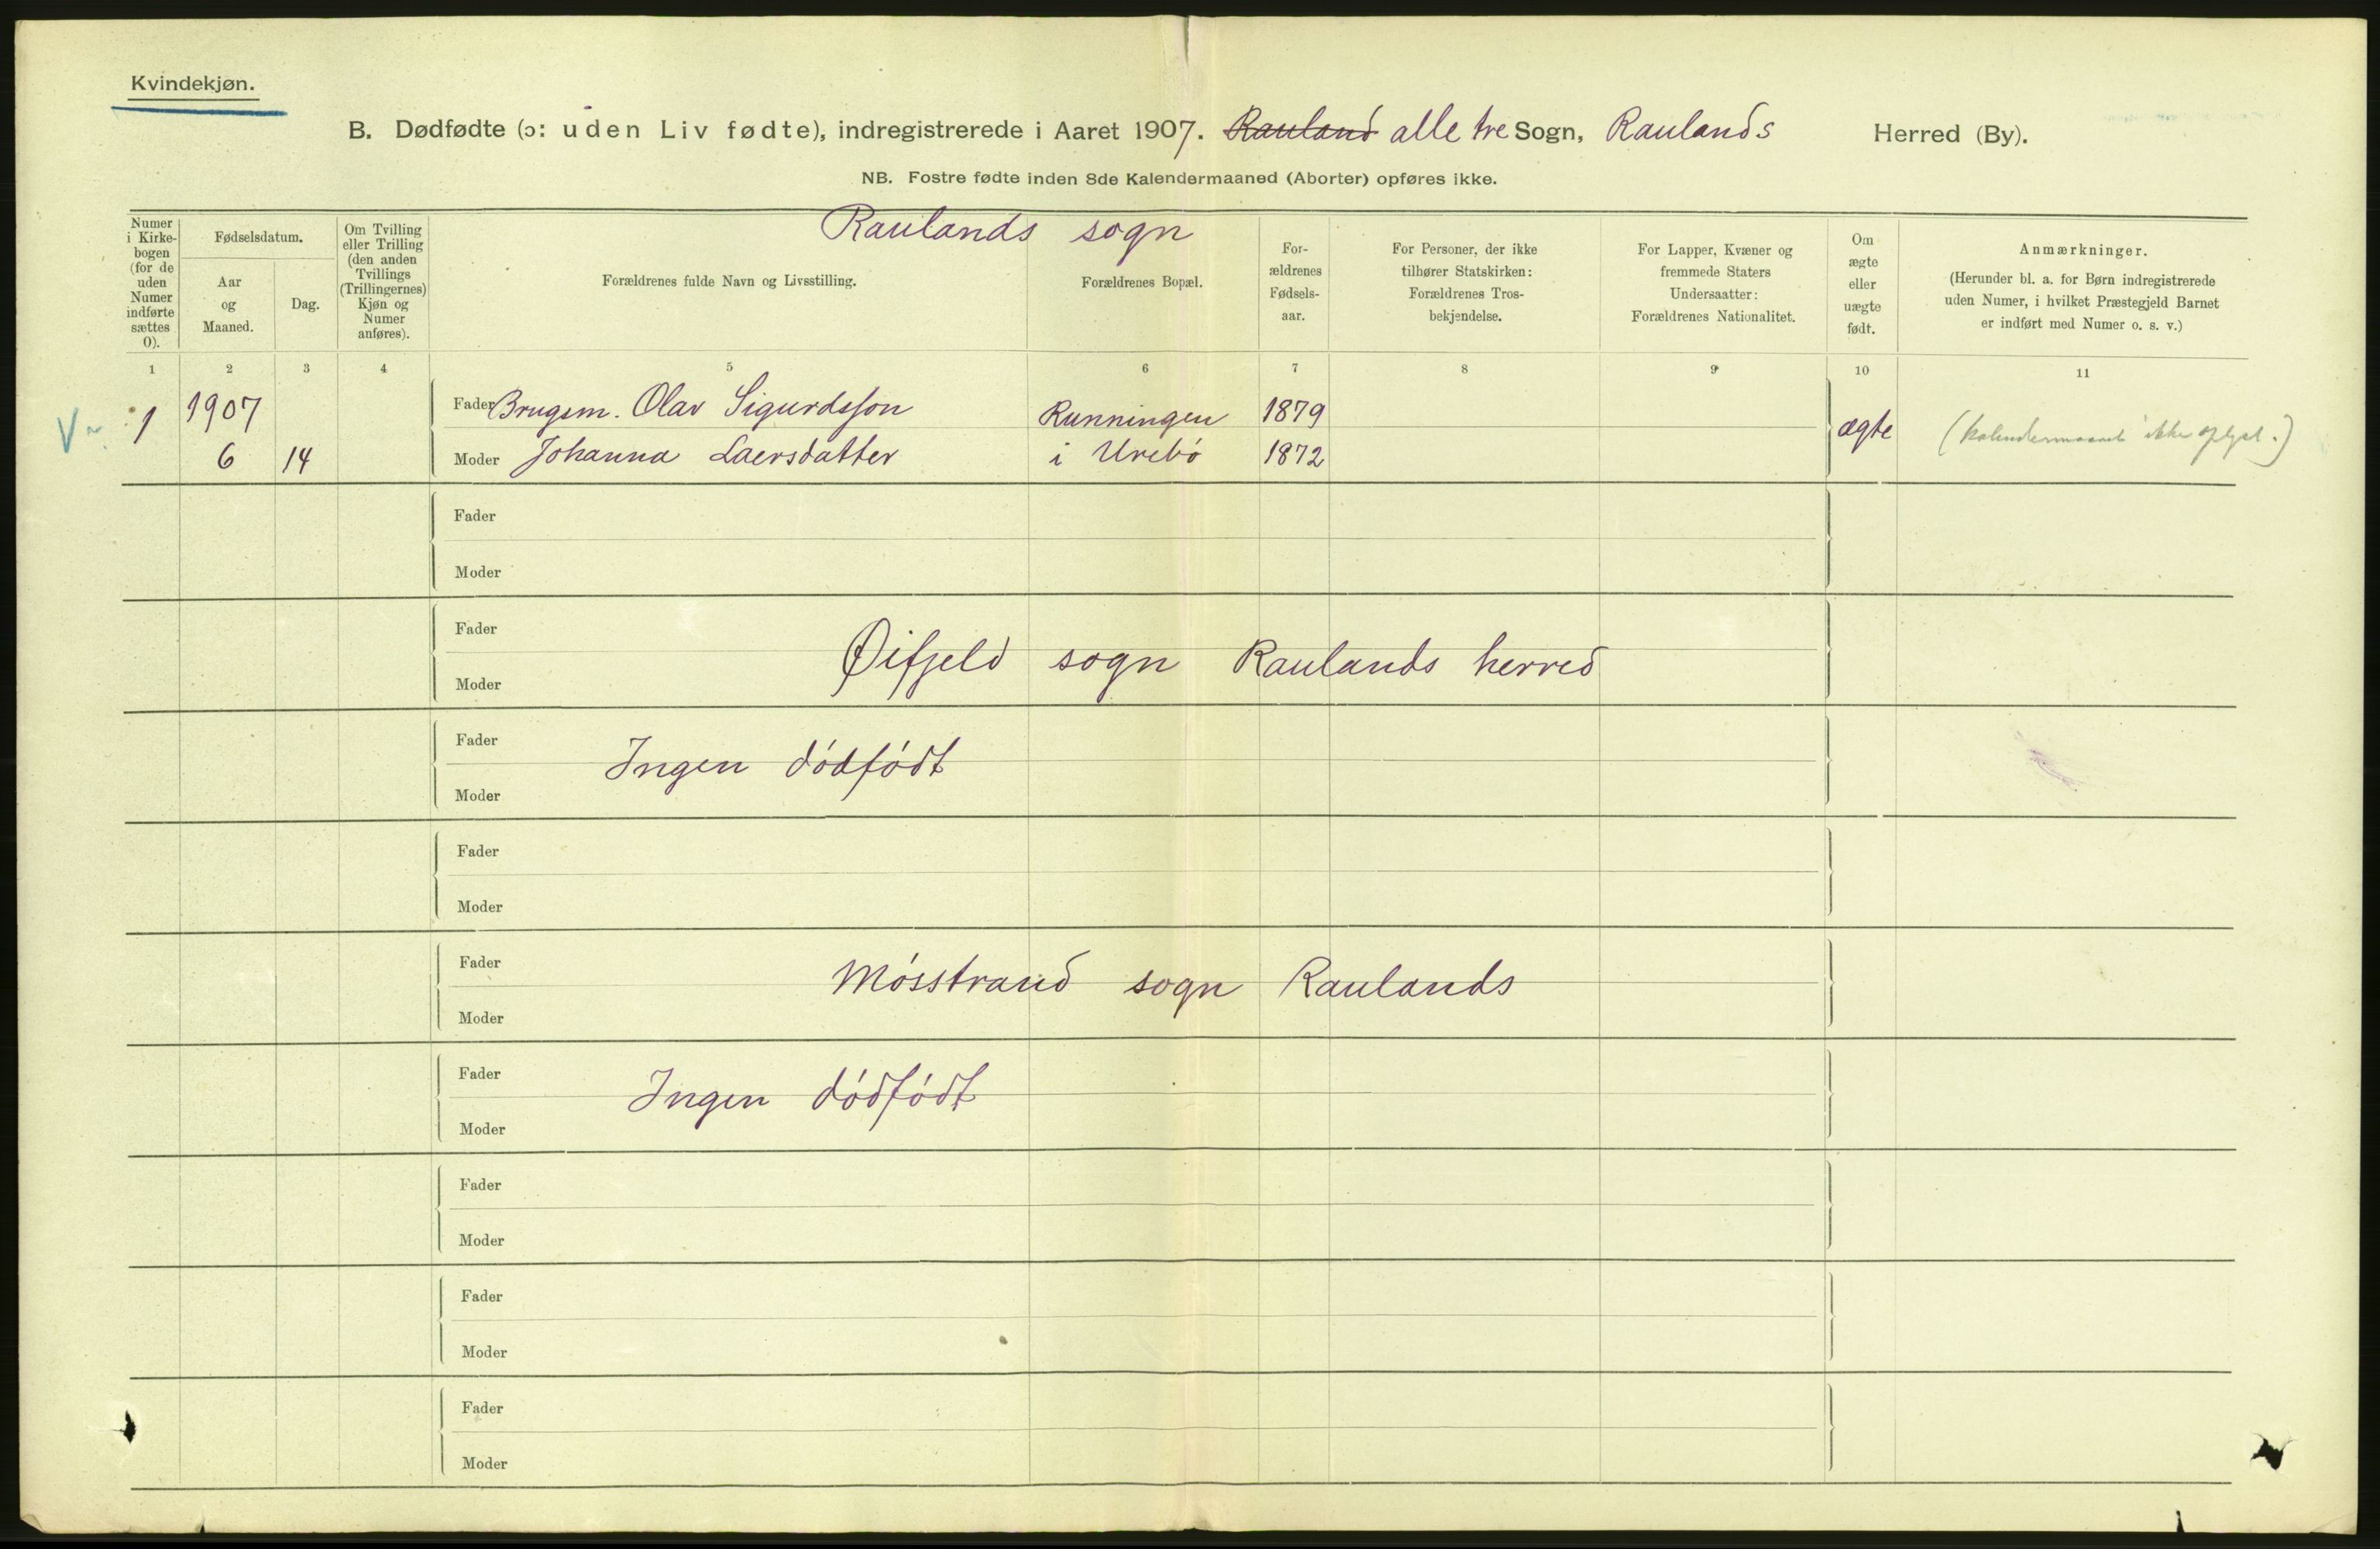 Kvindekjøn.
B. Dødfødte (ɔ: uden Liv fødte), indregistrerede i Aaret 1907. Rauland alle tre Sogn, Raulands Herred (By).
NB. Fostre fødte inden 8de Kalendermaaned (Aborter) opføres ikke.
Raulands sogn
Numer
i Kirke-
bogen
(for de
uden
Numer
indførte
sættes
0).
Fødselsdatum.
Aar
og
Maaned.
Dag.
Om Tvilling
eller Trilling
(den anden
Tvillings
(Trillingernes)
Kjøn og
Numer
anføres).
Forældrenes fulde Navn og Livsstilling.
Forældrenes Bopæl.
For-
ældrenes
Fødsels-
aar.
For Personer, der ikke
tilhører Statskirken:
Forældrenes Tros-
bekjendelse.
For Lapper, Kvæner og
fremmede Staters
Undersaatter:
Forældrenes Nationalitet.
Om
ægte
eller
uægte
født.
Anmærkninger.
(Herunder bl. a. for Børn indregistrerede
uden Numer, i hvilket Præstegjeld Barnet
er indført med Numer o. s. v.)
1 2 3 4 5 6 7 8 9 10 11
1 1907 Fader Brugsm. Olav Sigurdsson Runningen 1879
ægte (Kalendermaaned ikke oplyst.)
6 14 Moder Johanna Laersdatter i Urebö 1872
Fader
Moder
Fader
Øifjeld sogn Raulands herred
Moder
Fader
Ingen dödfödt
Moder
Fader
Moder
Fader
Mösstrand sogn Raulands
Moder
Fader
Ingen dödfödt
Moder
Fader
Moder
Fader
Moder
Fader
Moder